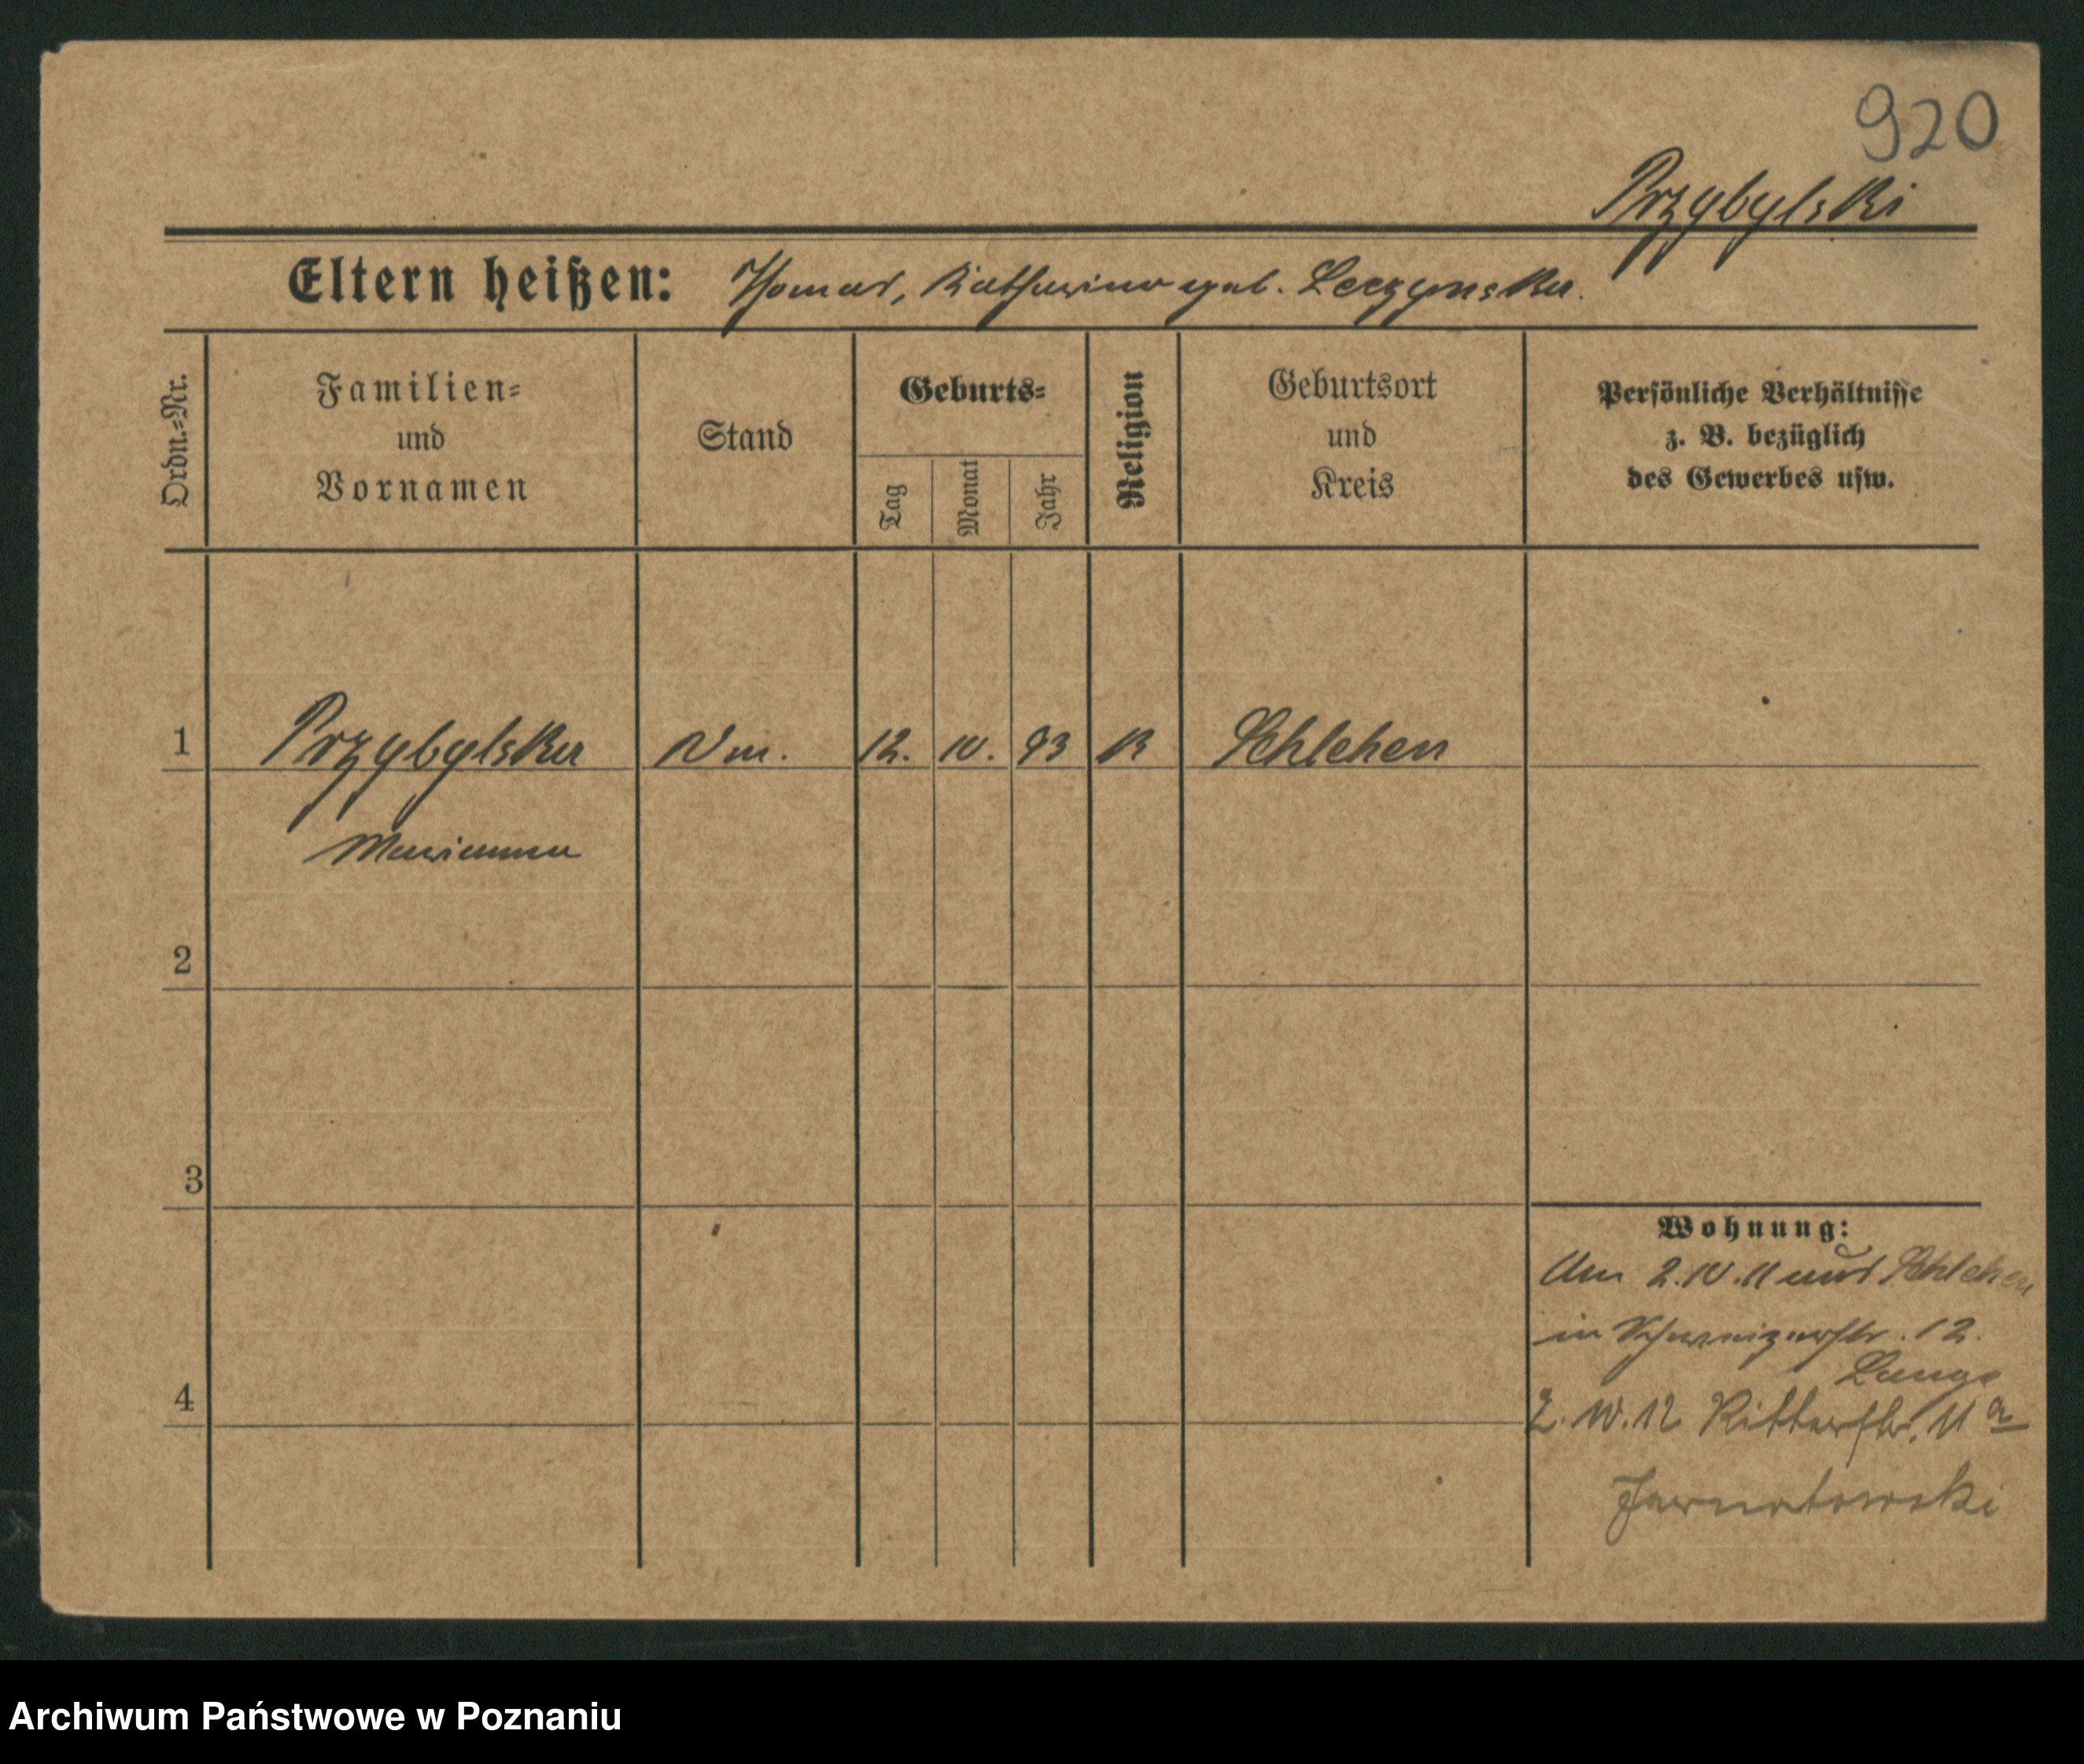 920
Przybylski
Eltern heißen: Thomas, Katharina geb. Leczynska.
Ordn.-Nr.
Familien-
und
Vornamen
Stand
Geburts-
Tag
Monat
Jahr
Religion
Geburtsort
und
Kreis
Persönliche Verhältnisse
z. B. bezüglich
des Gewerbes usw.
1 Przybylska 12. 10. 93 K Schlehen
Marianna
2
3
4
Wohnung:
Am 2. 10. 11 aus Schlehen
in Schweizerstr. 12.
Lange
2. 10. 12 Ritterstr. 11 a
Jarnatowski
Archiwum Państwowe w Poznaniu